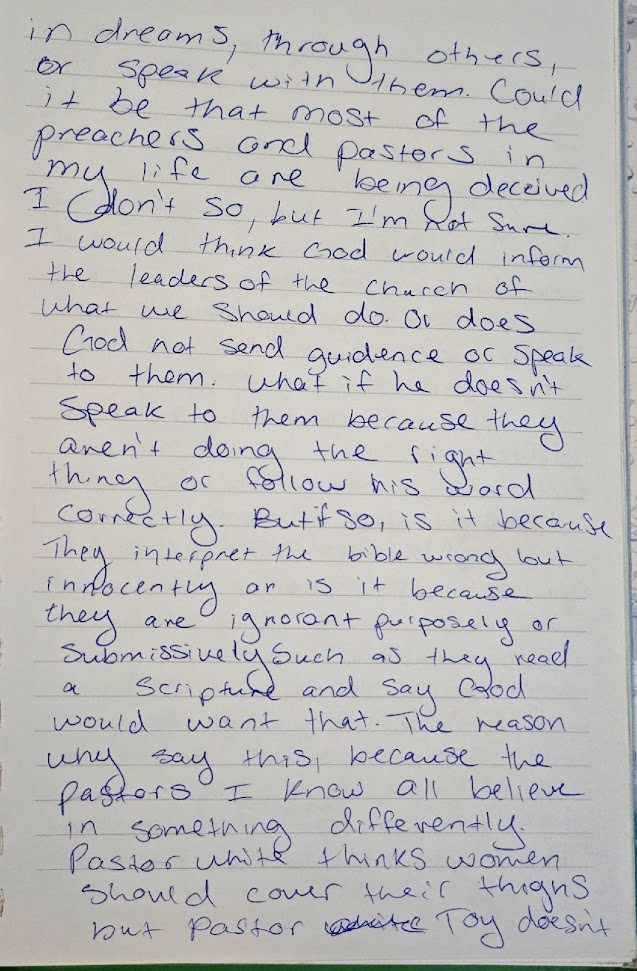 in dreams, through others,
or speak with them. Could
it be that most of the
preachers and pastors in
my life are being deceived
I don't so, but I'm not sure.
I would think God would inform
the leaders of the church of
what we should do. Or does
God not send guidence or speak
to them. What if he doesn't
speak to them because they
aren't doing the right
thing or follow his word
correctly. But if so, is it because
They interpret the bible wrong but
innocently or is it because
they are ignorant purposely or
submissively such as they read
a scripture and say God
would want that. The reason
why say this, because the
pastors I know all believe
in something differently.
Pastor white thinks women
should cover their thighs
but pastor Toy doesn't